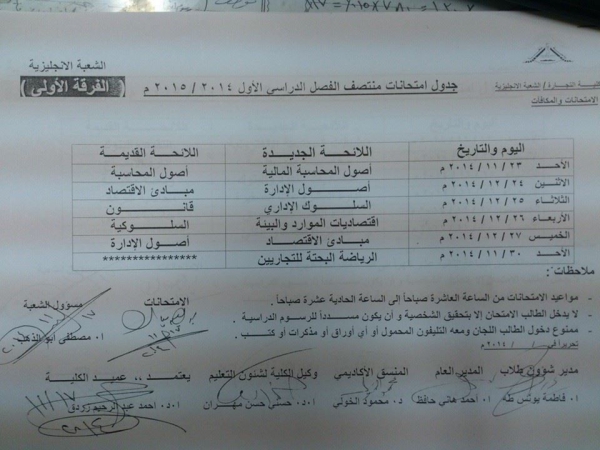 الشعبة الانجليزية
( الفرقة الأولى )
جدول امتحانات منتصف الفصل الدراسي الأول ٢٠١٤ / ٢٠١٥ م
التجارة / الشعبة الانجليزية
الامتحانات والمكافآت
اليوم والتاريخ اللائحة الجديدة اللائحة القديمة
الأحد ٢٣ / ١١ / ٢٠١٤ م أصول المحاسبة المالية أصول المحاسبة
الاثنين ٢٤ / ١٢ / ٢٠١٤ م أصـــول الإدارة مبـادئ الاقتصاد
الثلاثاء ٢٥ / ١٢ / ٢٠١٤ م السلـوك الإداري قانـــون
الأربعاء ٢٦ / ١٢ / ٢٠١٤ م اقتصاديات الموارد والبيئة السلـــوكية
الخميس ٢٧ / ١٢ / ٢٠١٤ م مبـادئ الاقتصاد أصـول الإدارة
الأحد ٣٠ / ١١ / ٢٠١٤ م الرياضة البحتة للتجاريين ****************
ملاحظات :
- مواعيد الامتحانات من الساعة العاشرة صباحاً إلى الساعة الحادية عشرة صباحاً .
- لا يدخل الطالب الامتحان إلا بتحقيق الشخصية و أن يكون مسدداً للرسوم الدراسية .
- ممنوع دخول الطالب اللجان ومعه التليفون المحمول أو أي أوراق أو مذكرات أو كتب .
تحريراً في / / ٢٠١٤ م
الامتحانات مسؤول الشعبة
ا. مصطفى أبو الدهب
مدير شؤون طلاب المدير العام المنسق الأكاديمي وكيل الكلية لشئون التعليم يعتمد ،، عميد الكلية
ا. فاطمة يونس طه ا. أحمد هاني حافظ د. محمود الخولي ا.د. حسني حسن مهران ا.د. أحمد عبد الرحيم زردق